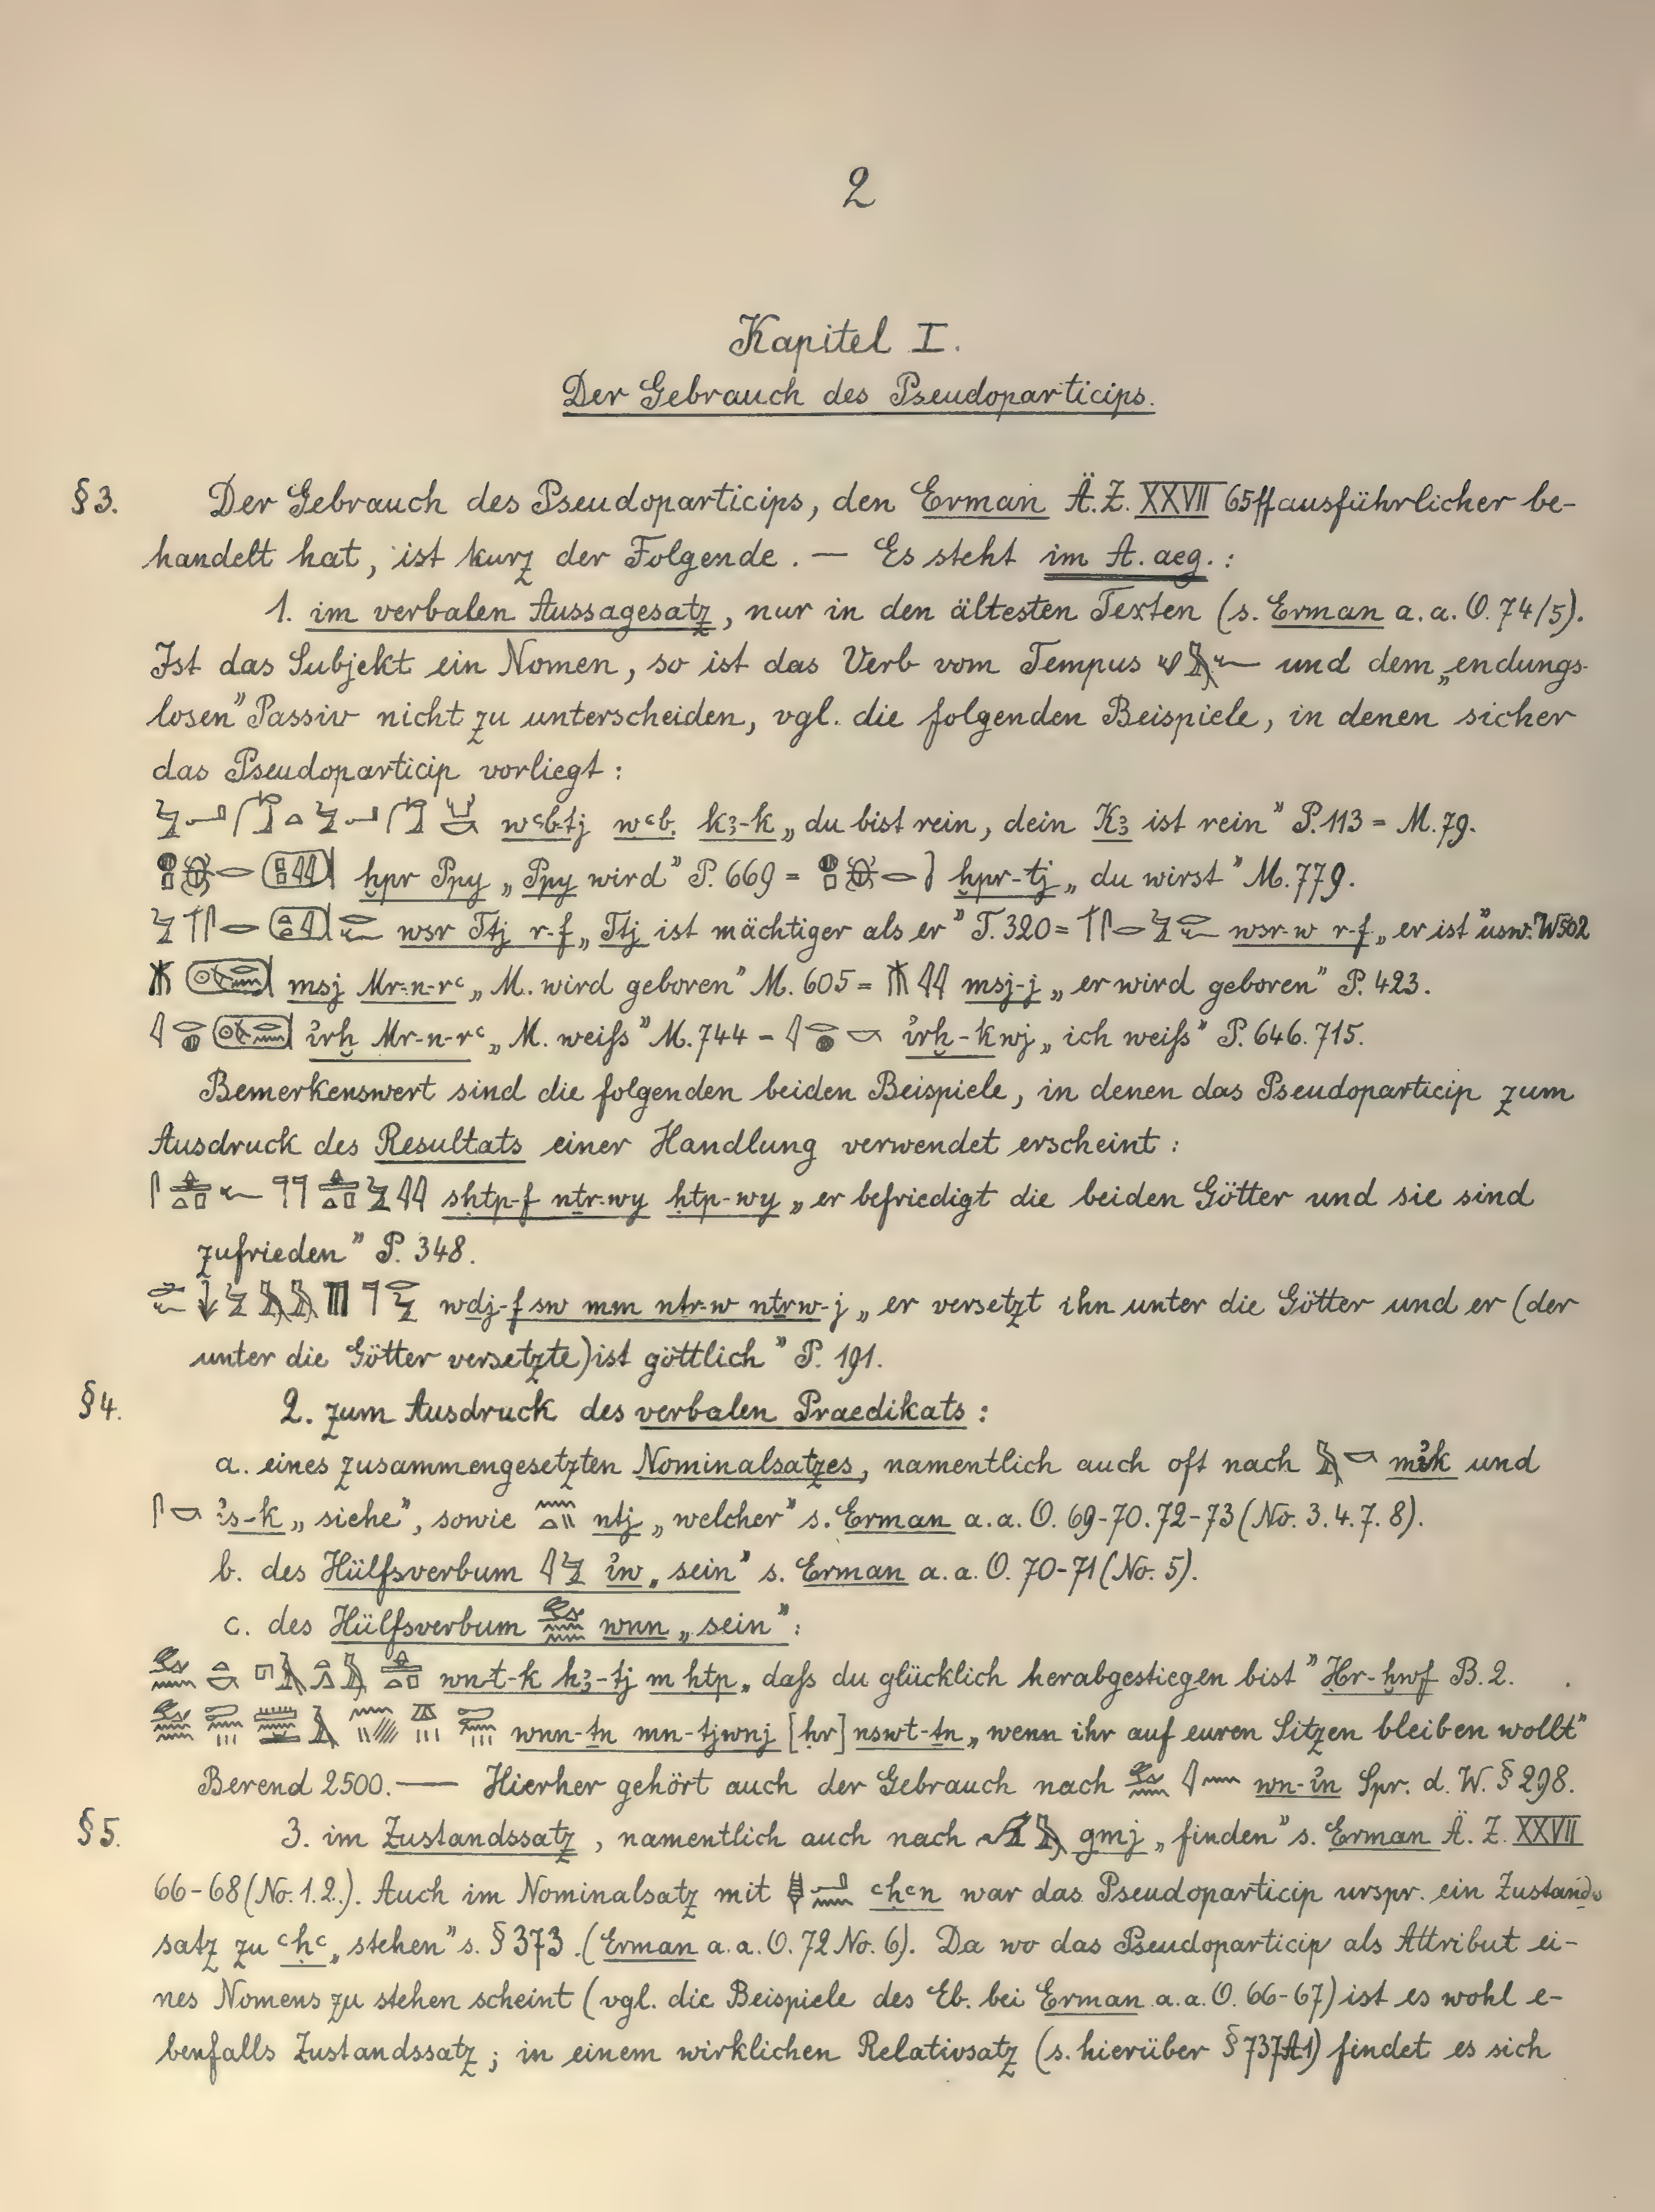 2
Kapitel I.
Der Gebrauch des Pseudoparticips.
§3. Der Gebrauch des Pseudoparticips, den Erman Ä.Z. XXVII 65ff ausführlicher be-
handelt hat, ist kurz der Folgende. — Es steht im A. aeg.:
1. im verbalen Aussagesatz, nur in den ältesten Texten (s. Erman a. a. O. 74/5).
Ist das Subjekt ein Nomen, so ist das Verb vom Tempus und dem „endungs-
losen” Passiv nicht zu unterscheiden, vgl. die folgenden Beispiele, in denen sicher
das Pseudoparticip vorliegt:
wꜥb-tj wꜥb. kꜣ-k „du bist rein, dein Kꜣ ist rein” P. 113 = M. 79.
ḫpr Ppy „Ppy wird” P. 669 = ḫpr-tj „du wirst” M. 779.
wsr Ttj r-f „Ttj ist mächtiger als er” T. 320 = wsr-w r-f „er ist” usw. W 502
msj Mr-n-rꜥ „M. wird geboren” M. 605 = msj-j „er wird geboren” P. 423.
ỉrḫ Mr-n-rꜥ „M. weiß” M. 744 – ỉrḫ-kwj „ich weiß” P. 646. 715.
Bemerkenswert sind die folgenden beiden Beispiele, in denen das Pseudoparticip zum
Ausdruck des Resultats einer Handlung verwendet erscheint:
sḥtp-f nṯr-wy ḥtp-wy „er befriedigt die beiden Götter und sie sind
zufrieden” P. 348.
wdj-f sw mm nṯr-w nṯrw-j „er versetzt ihn unter die Götter und er (der
unter die Götter versetzte) ist göttlich” P. 191.
§4. 2. zum Ausdruck des verbalen Praedikats:
a. eines zusammengesetzten Nominalsatzes, namentlich auch oft nach mỉk und
ỉs-k „siehe”, sowie ntj „welcher” s. Erman a. a. O. 69-70. 72-73 (No. 3. 4. 7. 8).
b. des Hülfsverbum ỉw „sein” s. Erman a. a. O. 70-71 (No. 5).
c. des Hülfsverbum wnn „sein”:
wn-t-k hꜣ-tj m ḥtp „daß du glücklich herabgestiegen bist” Ḥr-ḫwf B. 2.
wnn-ṯn mn-tjwnj [ḥr] nswt-ṯn „wenn ihr auf euren Sitzen bleiben wollt”
Berend 2500. — Hierher gehört auch der Gebrauch nach wn-ỉn Spr. d. W. § 298.
§5. 3. im Zustandssatz, namentlich auch nach gmj „finden” s. Erman Ä. Z. XXVII
66-68 (No. 1. 2.). Auch im Nominalsatz mit ꜥḥꜥn war das Pseudoparticip urspr. ein Zustands
satz zu ꜥḥꜥ „stehen” s. § 373. (Erman a. a. O. 72 No. 6). Da wo das Pseudoparticip als Attribut ei-
nes Nomens zu stehen scheint (vgl. die Beispiele des Eb. bei Erman a. a. O. 66-67) ist es wohl e-
benfalls Zustandssatz; in einem wirklichen Relativsatz (s. hierüber § 737A1) findet es sich